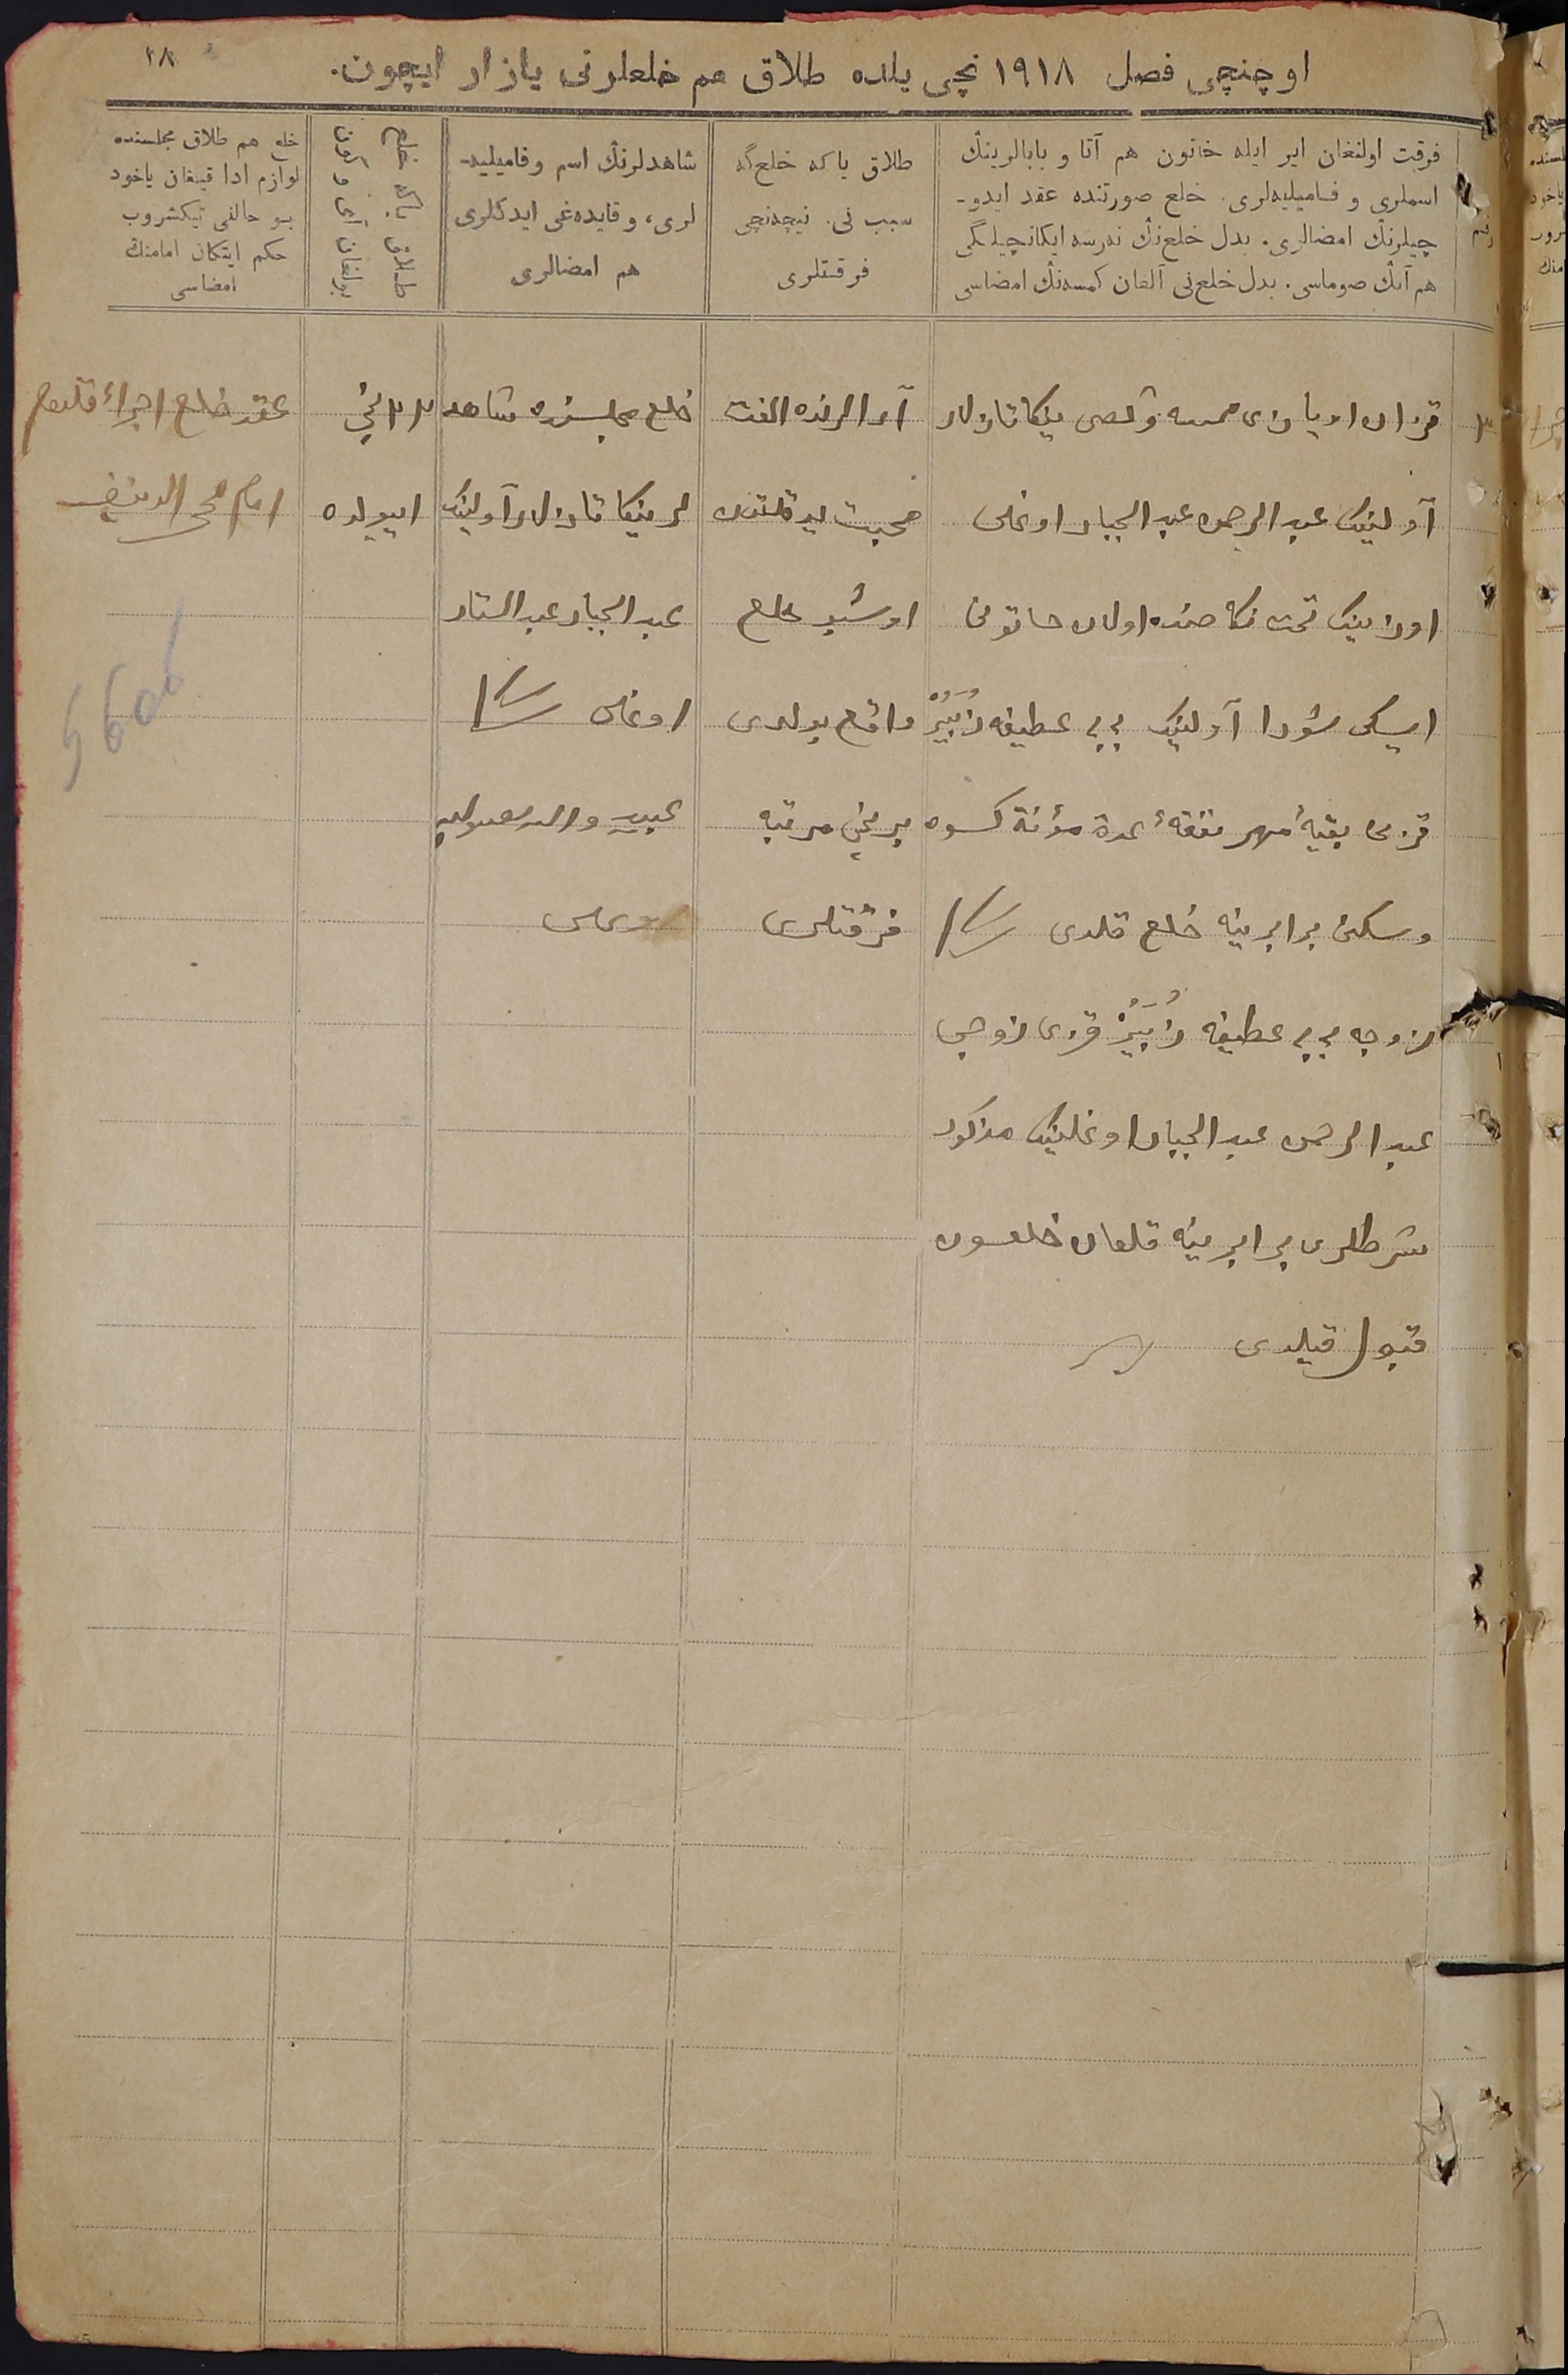 ٢٨
اوچنچی فصل ١٩١٨ نچی یلده طلاق هم خلعلرنی یازار ایچون.
رقم
فرقت اولنغان ایر ایله خاتون هم آتا و بابالرینڭ
اسملری و فامیلیه‌لری. خلع صورتنده عقد ایدو-
چیلرنڭ امضالری. بدل خلع‌نڭ نه‌رسه ایکانچیلگی
هم آنڭ صوماسی. بدل خلع‌نی آلغان کمسه‌نڭ امضاسی
طلاق یاکه خلع‌گه
سبب نی. نیچه‌نچی
فرقتلری
شاهدلرنڭ اسم وفامیلیه-
لری، وقایده‌غی ایدکلری
هم امضالری
طلاق یاکه خلع
بولغان آی و کون
خلع هم طلاق مجلسنده
لوازم ادا قیلغان یاخود
بو حالنی تیکشروب
حکم ایتکان امامنڭ
امضاسی
٣
قزان اویازی ینکا تازلار
آولینیک عبد الرحمن عبد الجبار اوغلی
اوزینیک تحت نکاحنده اولان خاتونی
ایسکی شودا آولینیک بی بی عطیفه زُبَیْرْ
قزی بقیهٔ مهر نفقهٔ عدة مؤنة کسوه
وسکنی برابرینه خلع قلدی
زوجه بی بی عطیفه زُبَیْرْ قزی زوجی
عبد الرحمن عبد الجبار اوغلینیک مذکور
شرطلری برابرینه قلغان خلعسون
قبول قیلدی
آرالرنده الفت
محبت بولماقندن
اوشبو خلع
واقع بولدی
برنچی مرتبه
فرقتلری
خلع مجلسنده شاهد
لر ینکا تازلار آولینیک
عبد الجبار عبد الستار
اوغلی
اوغلی
٢٢ نچی
اییولده
عقد خلع اجراء قلدم
امام محی الدینف